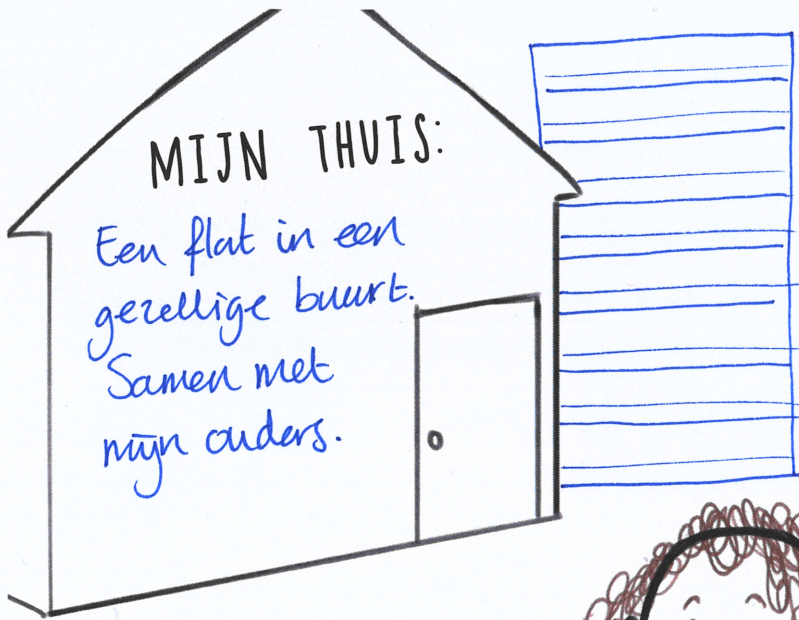 MIJN THUIS:
Een flat in een
gezellige buurt.
Samen met
mijn ouders.